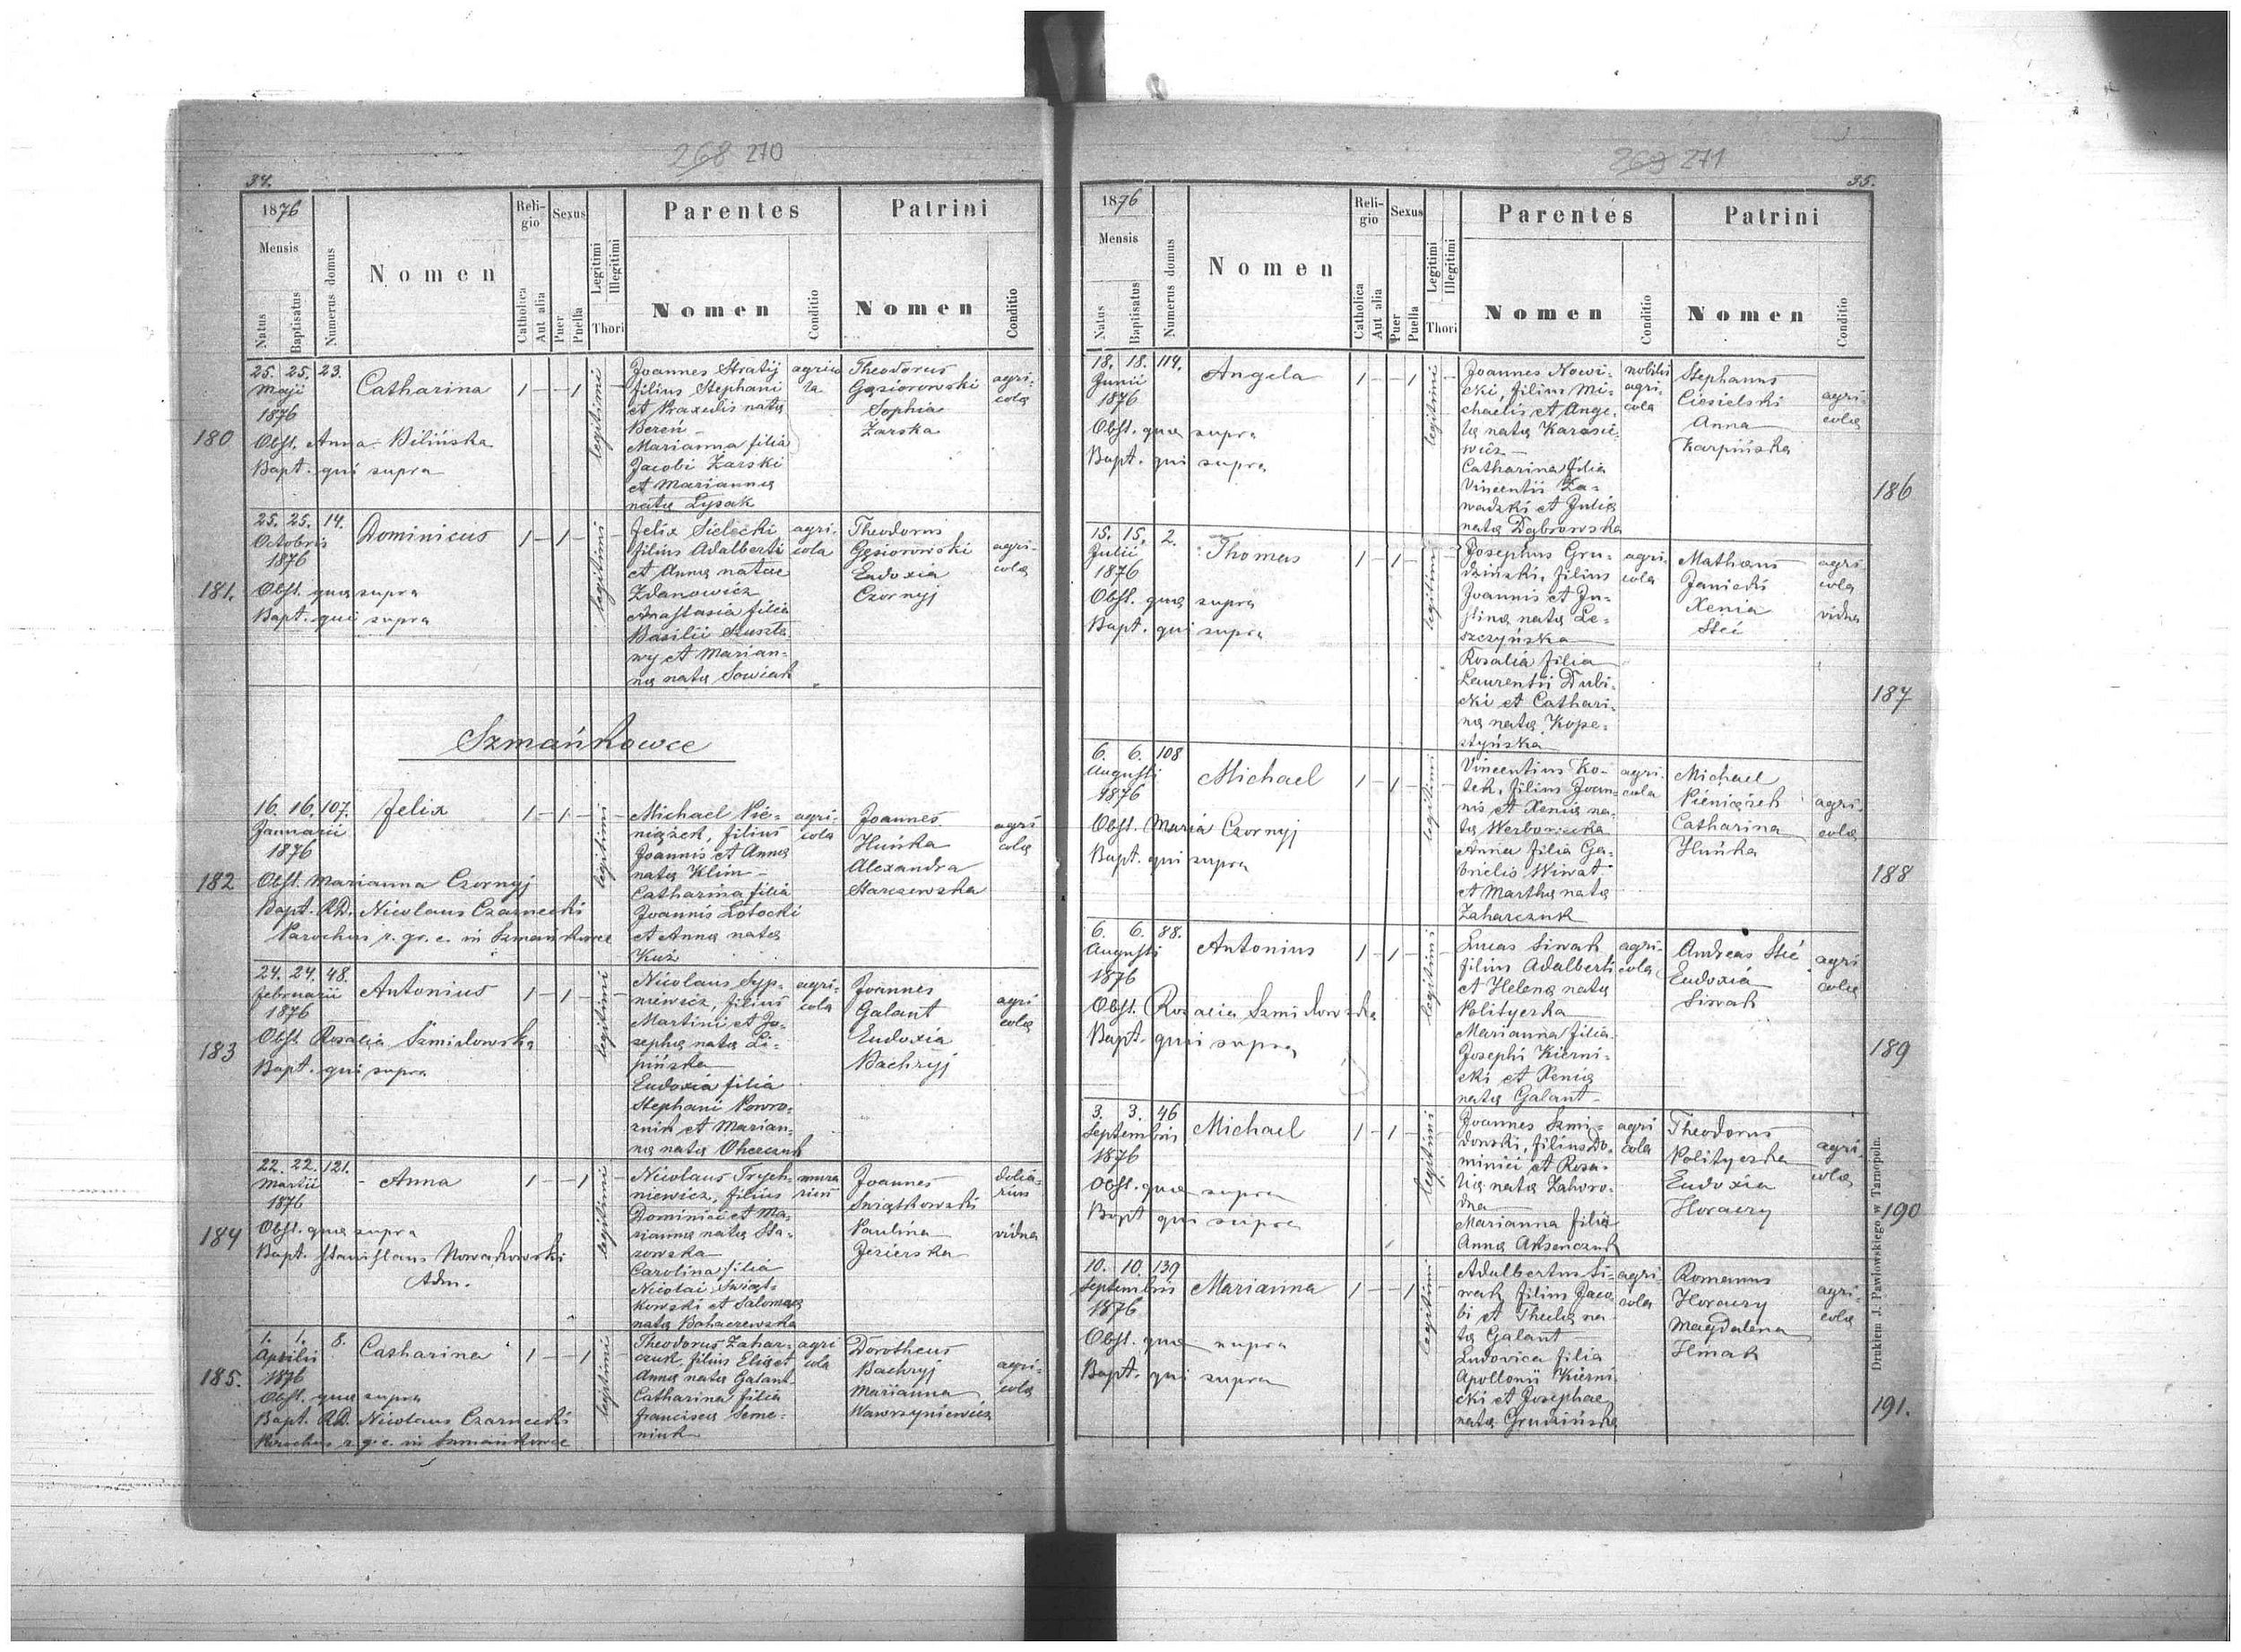 268 270
34.
1876
Mensis
Natus
Baptisatus
Numerus domus
Nomen
Religio
Catholica
Aut alia
Sexus
Puer
Puella
Legitimi
Illegitimi
Thori
Parentes
Nomen
Conditio
Patrini
Nomen
Conditio
180
25. 25. 23.
Maji
1876
Obst. Anna Bilińska
Bapt. qui supra
Catharina
1 — — 1
legitimi
Joannes Stratij
filius Stephani
et Praxedis nata
Bereń —
Marianna filia
Jacobi Żarski
et Marianna
nata Lysak
agrico
la
Theodorus
Gąsiorowski
Sophia
Żarska
agri-
cola
181.
25. 25. 14.
Octobris
1876
Obst. qua supra
Bapt. qui supra
Dominicus
1 — 1 —
legitimi
Felix Sielecki
filius Adalberti
et Anna natae
Zdanowicz
Anastasia filia
Basilii Szuszta-
wy et Marian-
na nata Sowiak
agri-
cola
Theodorus
Gąsiorowski
Eudoxia
Czornyj
agri-
cola
Szmańkowce
182
16. 16. 107.
Januarii
1876
Obst. Marianna Czornyj
Bapt. RD. Nicolaus Czarnecki
Parochus r. gr. c. in Szmańkowce
Felix
1 — 1 —
legitimi
Michael Pie-
niążek, filius
Joannis et Anna
nata Klim —
Catharina filia
Joannis Lotocki
et Anna nata
Kuź
agri-
cola
Joannes
Huńka
Alexandra
Starzewska
agri
cola
183
24. 24. 48.
Februarii
1876
Obst. Rosalia Szmidowska
Bapt. qui supra
Antonius
1 — 1 —
legitimi
Nicolaus Syp-
niewicz, filius
Martini et Jo-
sepha nata Li-
pińska
Eudoxia filia
Stephani Powro-
znik et Marian-
na nata
agri-
cola
Joannes
Galant
Eudoxia
Bachryj
agri
cola
184
22. 22. 121.
Martii
1876
Obst. qua supra
Bapt. Stanislaus Nowakowski
Adm.
Anna
1 — — 1
legitimi
Nicolaus Trych-
niewicz, filius
Dominici et Ma-
rianna nata Sta-
rowska
Carolina filia
Nicolai Świąt-
kowski et Salomea
nata Bohaczewska
mura
rius
Joannes
Swiątkowski
Paulina
Jezierska
dolia-
rius
vidua
185.
1. 1. 8.
Aprilis
1876
Obst. qua supra
Bapt. RD. Nicolaus Czarnecki
Parochus r. gr. c. in Szmańkowce
Catharina
1 — — 1
legitimi
Theodorus Zahar-
czuk, filius Elia et
Anna nata Galant
Catharina filia
Francisca Seme-
niuk
agri
cola
Dorotheus
Bachryj
Marianna
Wawrzyniewicz
agri-
cola
269 271
35.
1876
Mensis
Natus
Baptisatus
Numerus domus
Nomen
Religio
Catholica
Aut alia
Sexus
Puer
Puella
Legitimi
Illegitimi
Thori
Parentes
Nomen
Conditio
Patrini
Nomen
Conditio
18. 18. 114.
Junii
1876
Obst. qua supra
Bapt. qui supra
Angela
1 — — 1
legitimi
Joannes Nowi-
cki, filius Mi-
chaelis et Ange-
la nata Karasie-
wicz —
Catharina filia
Vincentii Za-
wadzki et Julia
nata Dąbrowska
nobilis
agri
cola
Stephanus
Ciesielski
Anna
Karpińska
agri-
cola
186
15. 15. 2.
Julii
1876
Obst. qua supra
Bapt. qui supra
Thomas
1 — 1 —
legitimi
Josephus Gru-
dziński, filius
Joannis et Ju-
stina nata Le-
szczyńska
Rosalia filia
Laurentii Dubi-
cki et Cathari-
na nata Kope-
styńska
agri-
cola
Mathaus
Janicki
Xenia
Steć
agri
cola
vidua
187
6. 6. 108
Augusti
1876
Obst. Maria Czornyj
Bapt. qui supra
Michael
1 — 1 —
legitimi
Vincentius Ko-
tek, filius Joan-
nis et Xenia na-
ta Werbowecka
Anna filia Ga-
brielis Wiwat
et Martha nata
Zaharczuk
agri-
cola
Michael
Pieniążek
Catharina
Huńka
agri-
cola
188
6. 6. 88.
Augusti
1876
Obst. Rozalia Szmidowska
Bapt. qui supra
Antonius
1 — 1 —
legitimi
Lucas Siwak
filius Adalberti
et Helena nata
Polityczka
Marianna filia
Josephi Kierni-
cki et Xenia
nata Galant —
agri-
cola
Andreas Steć
Eudoxia
Siwak
agri
cola
189
3. 3. 46
Septembris
1876
Obst. qua supra
Bapt qui supra
Michael
1 — 1 —
legitimi
Joannes Szmi-
dowski, filius Do-
minici et Rosa-
lia nata Zahoro-
dna
Marianna filia
Anna Aksenczuk
agri
cola
Theodorus
Polityczka
Eudoxia
Horaczy
agri-
cola
190
10. 10. 139
Septembris
1876
Obst. qua supra
Bapt. qui supra
Marianna
1 — — 1
legitimi
Adalbertus Si-
wak filius Jaco-
bi et Thecla na-
ta Galant
Ludovica filia
Apollonii Kierni
cki et Josephae
nata Grudzińska
agri-
cola
Romanus
Horaczy
Magdalena
Hnak
agri-
cola
191.
Drukiem J. Pawłowskiego w Tarnopolu.